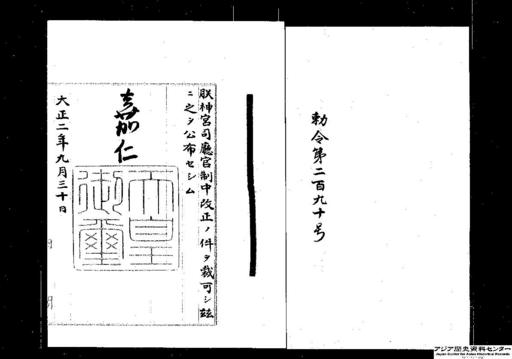 勅令第二百九十号
朕神宮司廳官制中改正ノ件ヲ裁可シ玆
ニ之ヲ公布セシム
嘉仁
天皇
御璽
大正二年九月三十日
アジア歴史資料センター
Japan Center for Asian Historical Records